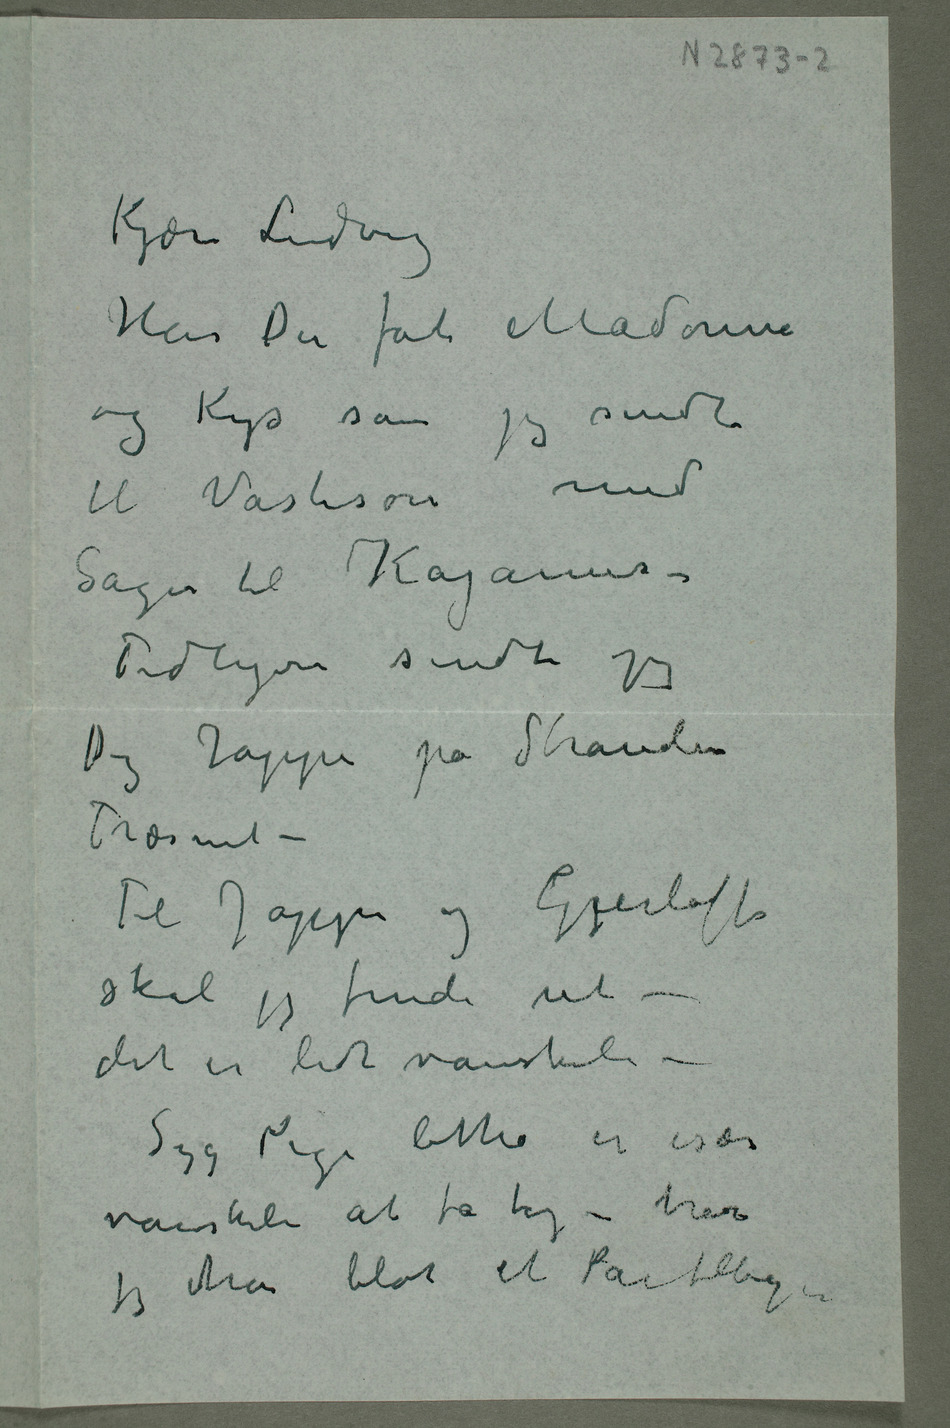 N 2873-2
Kjære Ludvig
Har Du fåt Madonna
og Kys som jeg sendte
til Vasteson med
Sager til Kaganus –
Tidligere sendte jeg
Dig Jappe på Stranden
Træsnit –
Til Jappe og Gjerløff
skal jeg finde ut –
det er lidt vanskeli –
Syg Pige litho er især
vanskeli at få tag –
jeg har blot et Par tilbage